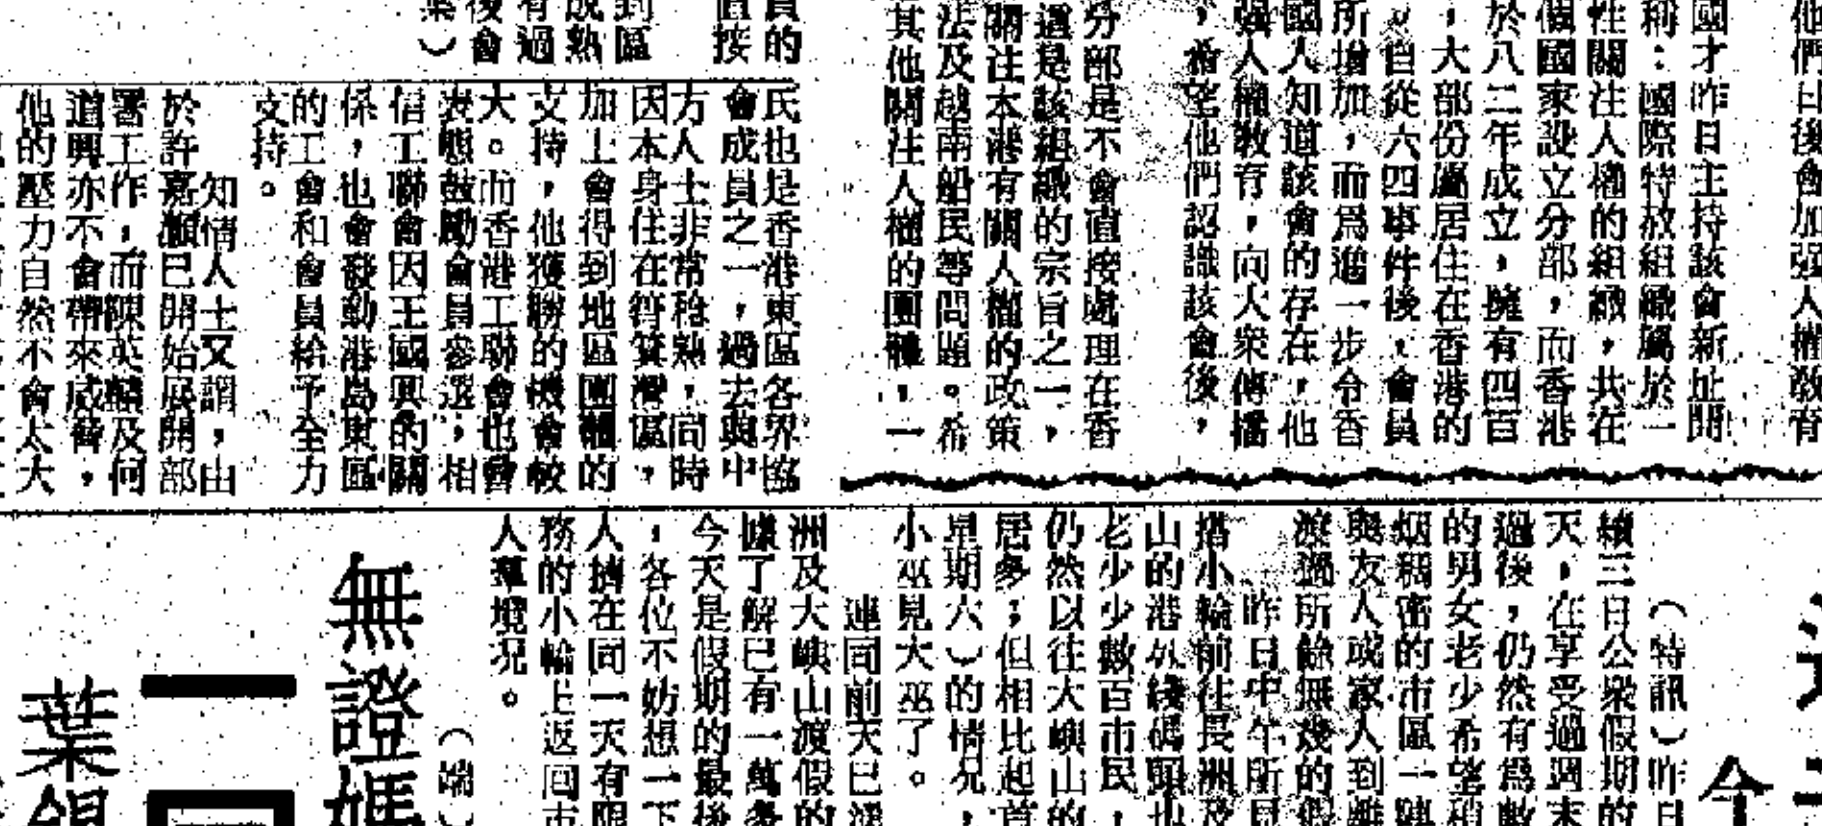 他們日後會加强人權敎育
國才昨日主持該會新址開
稱：國際特赦組織屬於一
性關注人權的組織，共在
個國家設立分部，而香港
於八二年成立，擁有四百
，大部份屬居住在香港的
自從六四事件後，會員
所增加，而爲進一步令香
國人知道該會的存在，他
强人權敎育，向大衆傳播
，希望他們認識該會後，
分部是不會直接處理在香
這是該組織的宗旨之一，
關注本港有關人權的政策
法及越南船民等問題。希
其他關注人權的團體，一
員的
直接
到區
成熟
有過
後會
氏也是香港東區各界協
會成員之一，過去與中
方人士非常稔熟，同時
因本身住在筲箕灣區，
加上會得到地區團體的
支持，他獲勝的機會較
大。而香港工聯會也會
表態鼓勵會員參選，相
信工聯會因王國興的關
係，也會發動港島東區
的工會和會員給予全力
支持。
知情人士又謂，由
於許嘉灝已開始展開部
署工作，而陳英麟及何
道興亦不會帶來威脅，
他的壓力自然不會太大
（特訊）昨日
續三日公衆假期的
天，在享受過週末
過後，仍然有爲數
的男女老少希望稍
烟稠密的市區一
與友人或家人到離
渡過所餘無幾的假
昨日中午所見
搭小輪前往長洲及
山的港外綫碼頭也
老少少數百市民，
仍然以往大嶼山的
居多；但相比起首
星期六）的情况，
小巫見大巫了。
連同前天已湧
洲及大嶼山渡假的
據了解已有一萬多
今天是假期的最後
，各位不妨想一下
人擠在同一天有限
務的小輪上返回市
人羣境况。
（端）
無證媽
葉
今